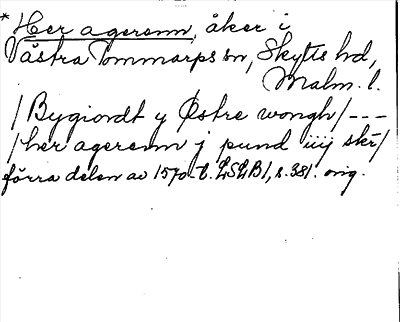 * Her agerenn, åker i
Västra Tommarps sn, Skytts hd,
Malm. l.
/ Bygiordt y Østre wongh / ---
/ her agerenn j pund iiij skr /
förra delen av 1570-t. LSLB 1, s. 381. orig.